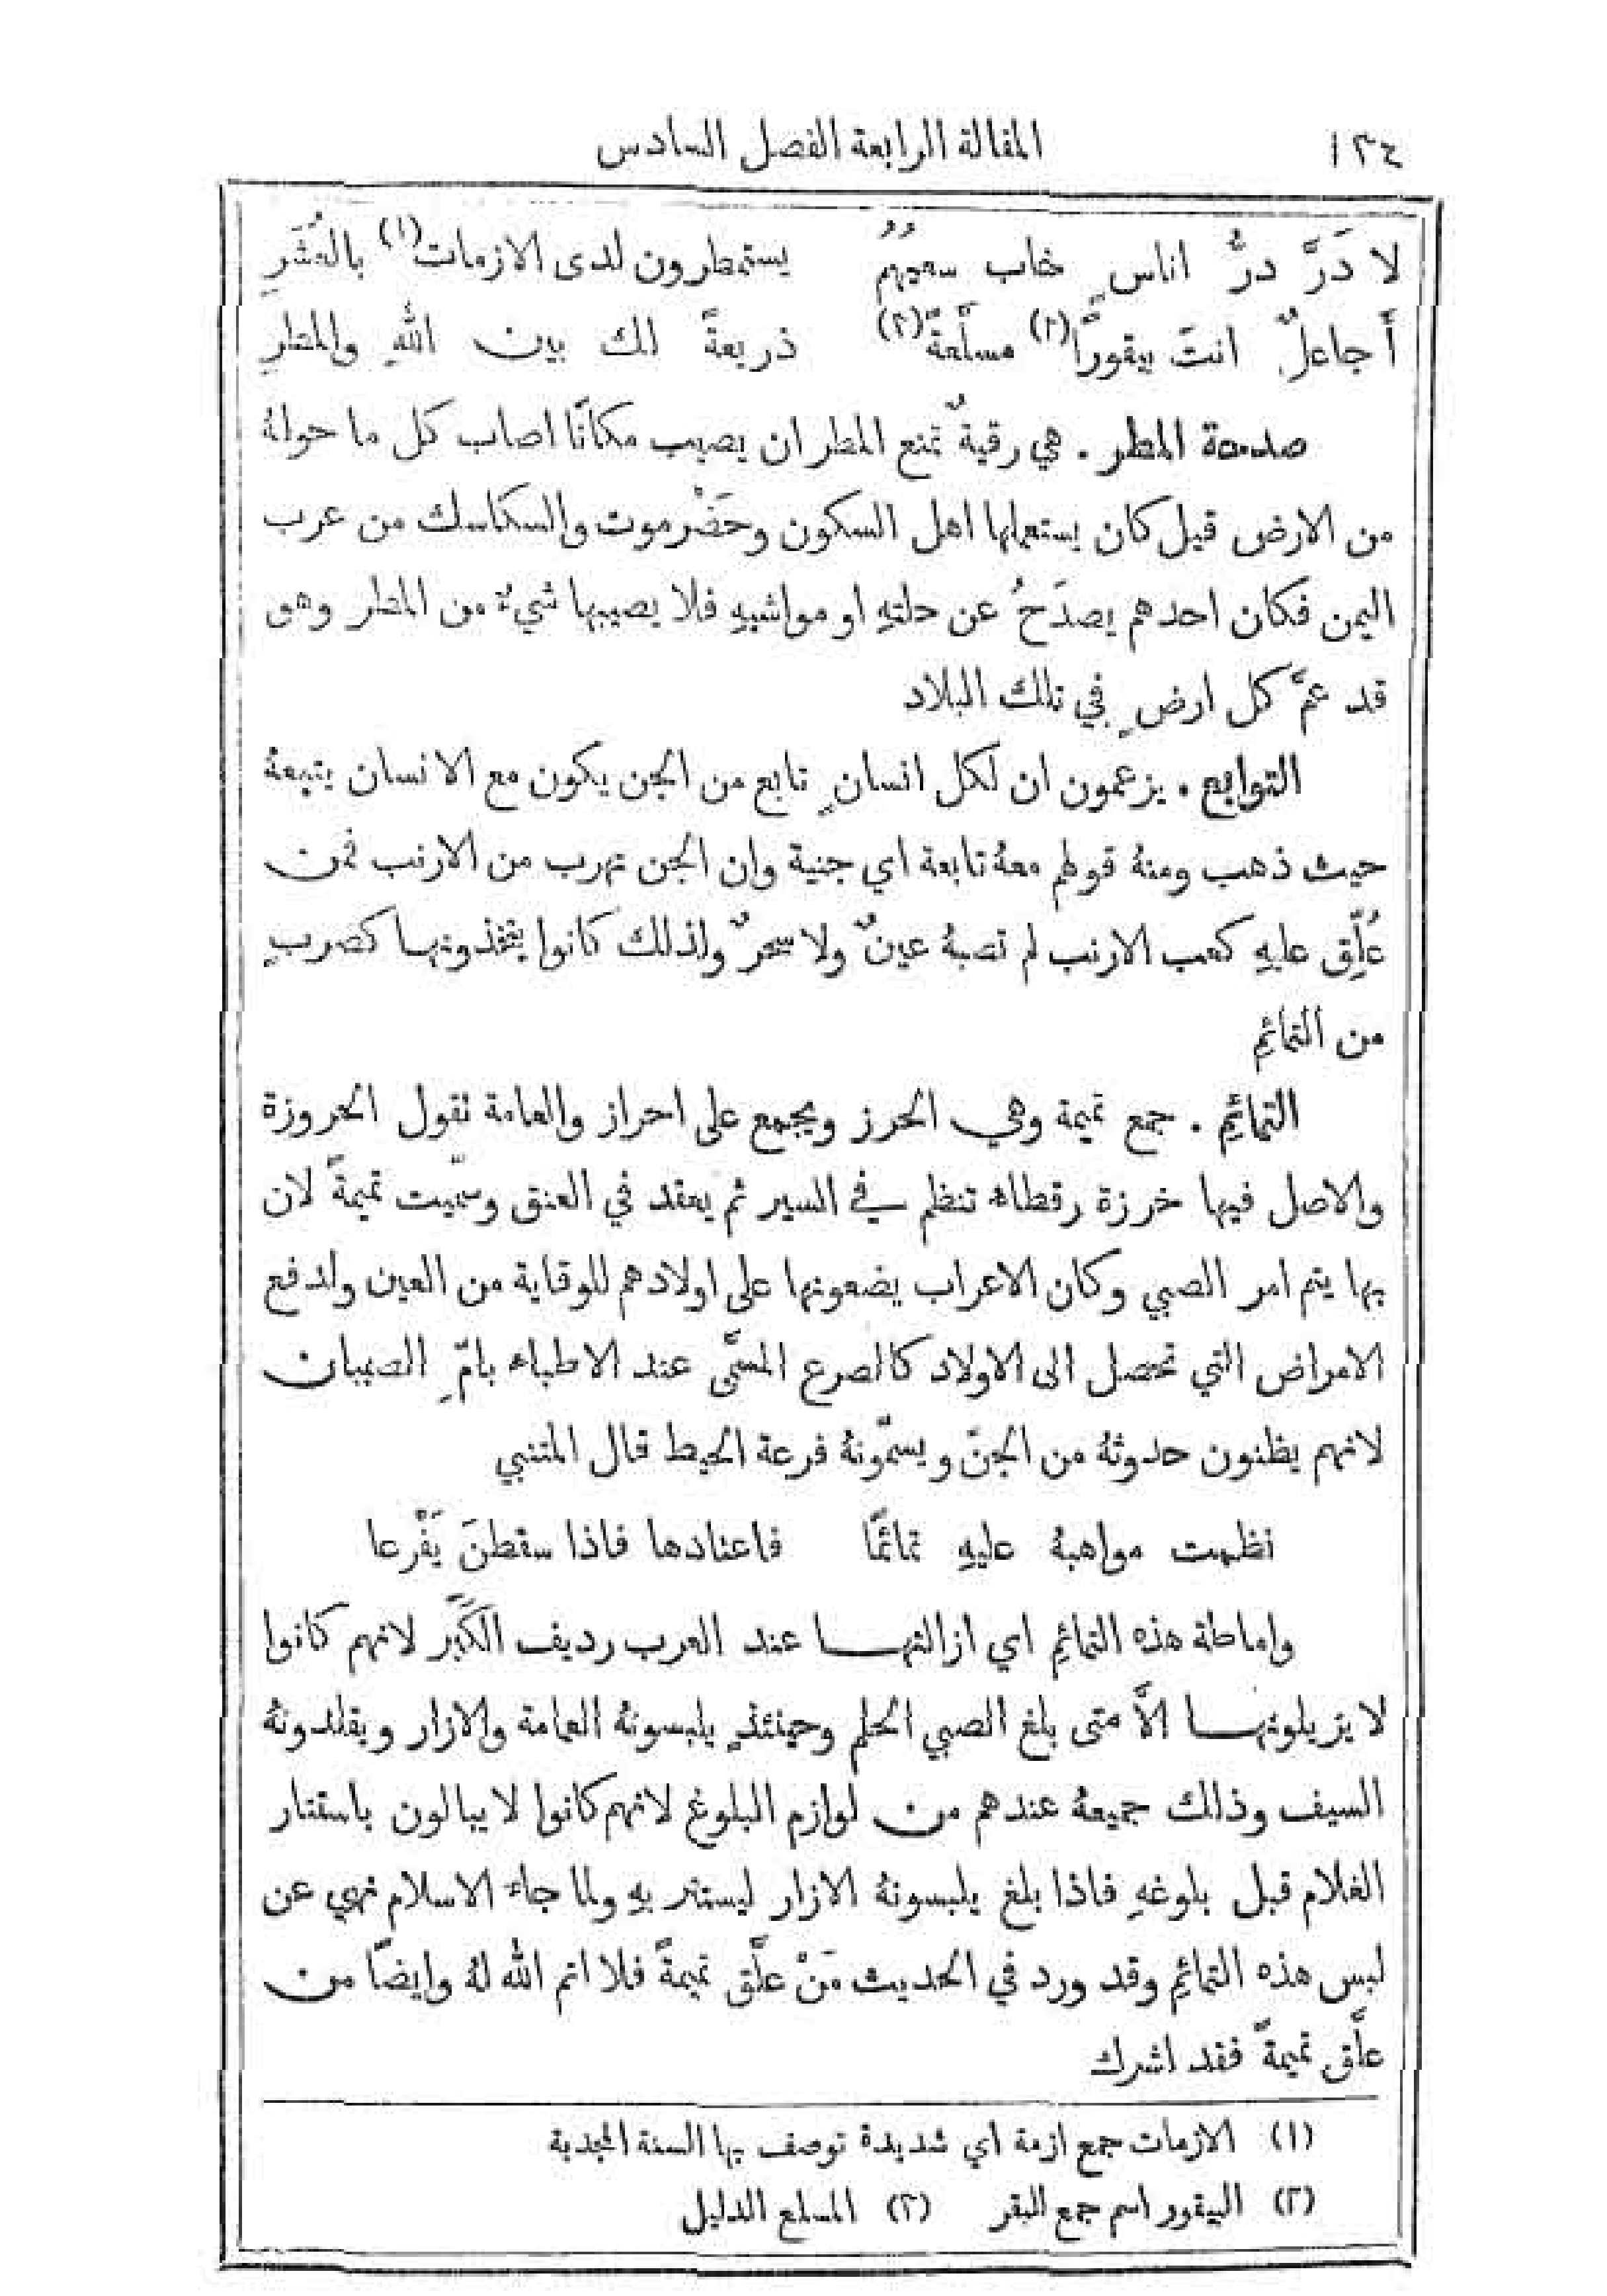 ١٣٤ المقالة الرابعة الفصل السادس
لا دَرَّ درُّ اناسٍ خاب سعيهُمُ يستمطرون لدى الازمات(١) بالعُشَرِ
أَجاعلٌ انتَ بيقورًا(٢) مسلَّعةً(٣) ذريعةً لك بين اللهِ والمطرِ
صدحة المطر . هي رقيةٌ تمنع المطر ان يصيب مكانًا اصاب كل ما حولهُ
من الارض قيل كان يستعملها اهل السكون وحَضْرموت والسكاسك من عرب
اليمن فكان احدهم يصدَحُ عن حلتهِ او مواشيهِ فلا يصيبها شيءٌ من المطر وهو
قد عمَّ كل ارضٍ في تلك البلاد
التوابع . يزعمون ان لكل انسانٍ تابع من الجن يكون مع الانسان يتبعهُ
حيث ذهب ومنهُ قولهم معهُ تابعة اي جنية وان الجن تهرب من الارنب فمن
عُلِّق عليهِ كعب الارنب لم تصبهُ عينٌ ولا سحرٌ ولذلك كانوا يتخذونها كضربٍ
من التمائمِ
التمائمِ . جمع تميمة وهي الحرز ويجمع على احراز والعامة تقول الحروزة
والاصل فيها خرزة رقطاء تنظم في السير ثم يعقد في العنق وسمّيت تميمةً لان
بها يتم امر الصبي وكان الاعراب يضعونها على اولادهم للوقاية من العين ولدفع
الامراض التي تحصل الى الاولاد كالصرع المسمَّى عند الاطباء بامّ الصبيان
لانهم يظنون حدوثهُ من الجنّ ويسمّونهُ فرعة الحيط قال المتنبي
نظمت مواهبهُ عليهِ تمائمًا فاعتادها فاذا سقطنَ يَفْرعا
واماطة هذه التمائمِ اي ازالتها عند العرب رديف الكَبَر لانهم كانوا
لا يزيلونها الاَّ متى بلغ الصبي الحلم وحينئذٍ يلبسونهُ العمامة والازار ويقلدونهُ
السيف وذلك جميعهُ عندهم من لوازم البلوغ لانهم كانوا لا يبالون باستتار
الغلام قبل بلوغهِ فاذا بلغ يلبسونهُ الازار ليستتر بهِ ولما جاء الاسلام نهي عن
لبس هذه التمائمِ وقد ورد في الحديث مَنْ علَّق تميمةً فلا اتم الله لهُ وايضًا من
علَّق تميمةً فقد اشرك
(١) الازمات جمع ازمة اي شديدة توصف بها السنة المجدبة
(٢) البيقور اسم جمع البقر (٣) المسلع الدليل